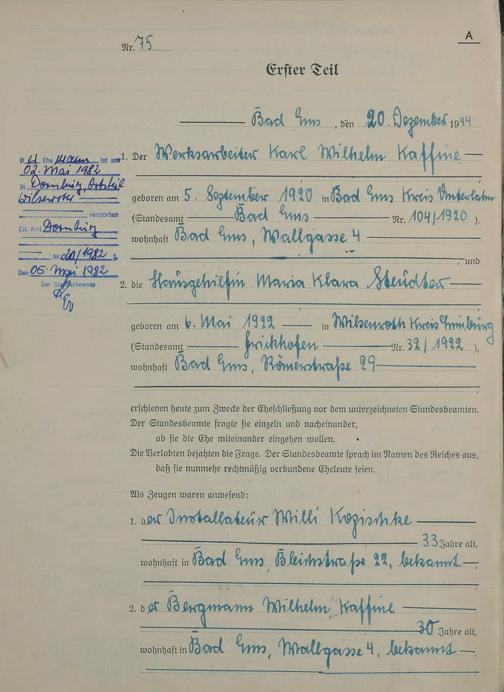 A
Nr. 75
Erster Teil
Bad Ems, den 20. Dezember 1944
1. Der Werksarbeiter Karl Wilhelm Kaffine
geboren am 5. September 1920 in Bad Ems Kreis Unterlahn
(Standesamt Bad Ems Nr. 104/1920),
wohnhaft Bad Ems, Wallgasse 4
, und
2. die Hausgehilfin Maria Klara Steudter
geboren am 6. Mai 1922 in Wilsenroth Kreis Limburg
(Standesamt Frickhofen Nr. 32/1922),
wohnhaft Bad Ems, Römerstraße 29
erschienen heute zum Zwecke der Eheschließung vor dem unterzeichneten Standesbeamten.
Der Standesbeamte fragte sie einzeln und nacheinander,
ob sie die Ehe miteinander eingehen wollen.
Die Verlobten bejahten die Frage. Der Standesbeamte sprach im Namen des Reiches aus,
daß sie nunmehr rechtmäßig verbundene Eheleute seien.
Als Zeugen waren anwesend:
1. der Installateur Willi Kozischke
33 Jahre alt,
wohnhaft in Bad Ems, Bleichstraße 22, bekannt
2. der Bergmann Wilhelm Kaffine
30 Jahre alt,
wohnhaft in Bad Ems, Wallgasse 4, bekannt
Der Ehemann ist am
02. Mai 1982
in Dornburg, Ortsteil
Wilsenroth
verstorben
(St. Amt Dornburg
Nr. 20/1982)
Den 05. Mai 1982
Der Standesbeamte